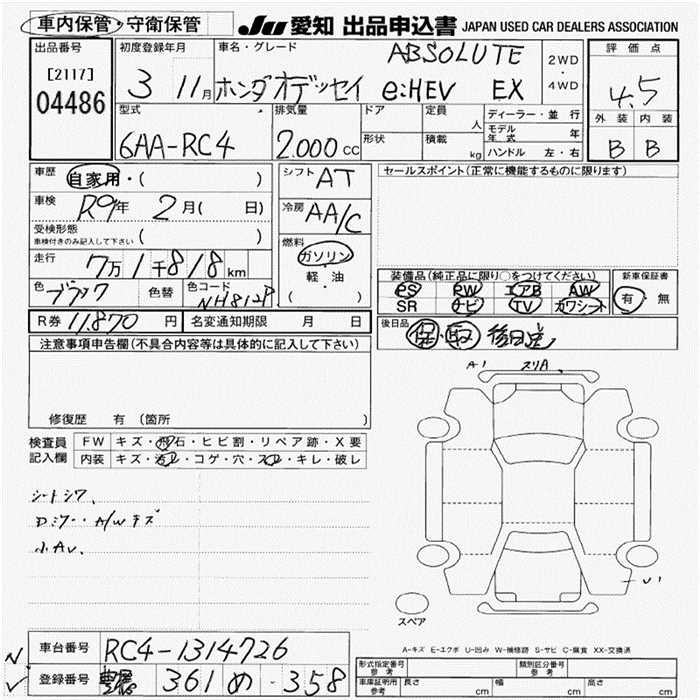 車内保管・守衛保管 JU 愛知 出品申込書 JAPAN USED CAR DEALERS ASSOCIATION
出品番号 初度登録年月 車名・グレード ABSOLUTE 2WD・4WD 評価点
[2117] 04486 3 11月 ホンダ オデッセイ e:HEV EX 4.5
型式 排気量 ドア 定員 人 ディーラー・並行 外装 内装
6AA-RC4 2.000cc 形状 積載 kg モデル年式 年 B B
ハンドル 左・右
車歴 自家用・( ) シフト AT セールスポイント(正常に機能するものに限ります)
車検 R9年 2月( 日) 冷房 AA/C
受検形態 車検付きのみ記入して下さい ( )
燃料 ガソリン・軽・油 ( )
走行 7万1千818km 装備品(純正品に限り○をつけてください) 新車保証書
色 ブラック 色替 色コード NH812P PS PW エアB AW 有・無
SR ナビ TV カワシート
R券 11,870円 名変通知期限 月 日 後日品 保・取 後日送
注意事項申告欄(不具合内容等は具体的に記入して下さい)
A1 スリA
修復歴 有 (箇所 )
検査員記入欄 FW キズ・飛石・ヒビ割・リペア跡・X要
内装 キズ・汚レ・コゲ・穴・スレ・キレ・破レ
シートシワ、
Dミラー・A/Wキズ
小AU、
U1
スペア
A-キズ E-エクボ U-凹み W-補修跡 S-サビ C-腐食 XX-交換済
車台番号 RC4-1314726 形式指定番号 参考 類別区分番号 参考
登録番号 361 め・358 車庫証明用 参考 長さ cm 幅 cm 高さ cm